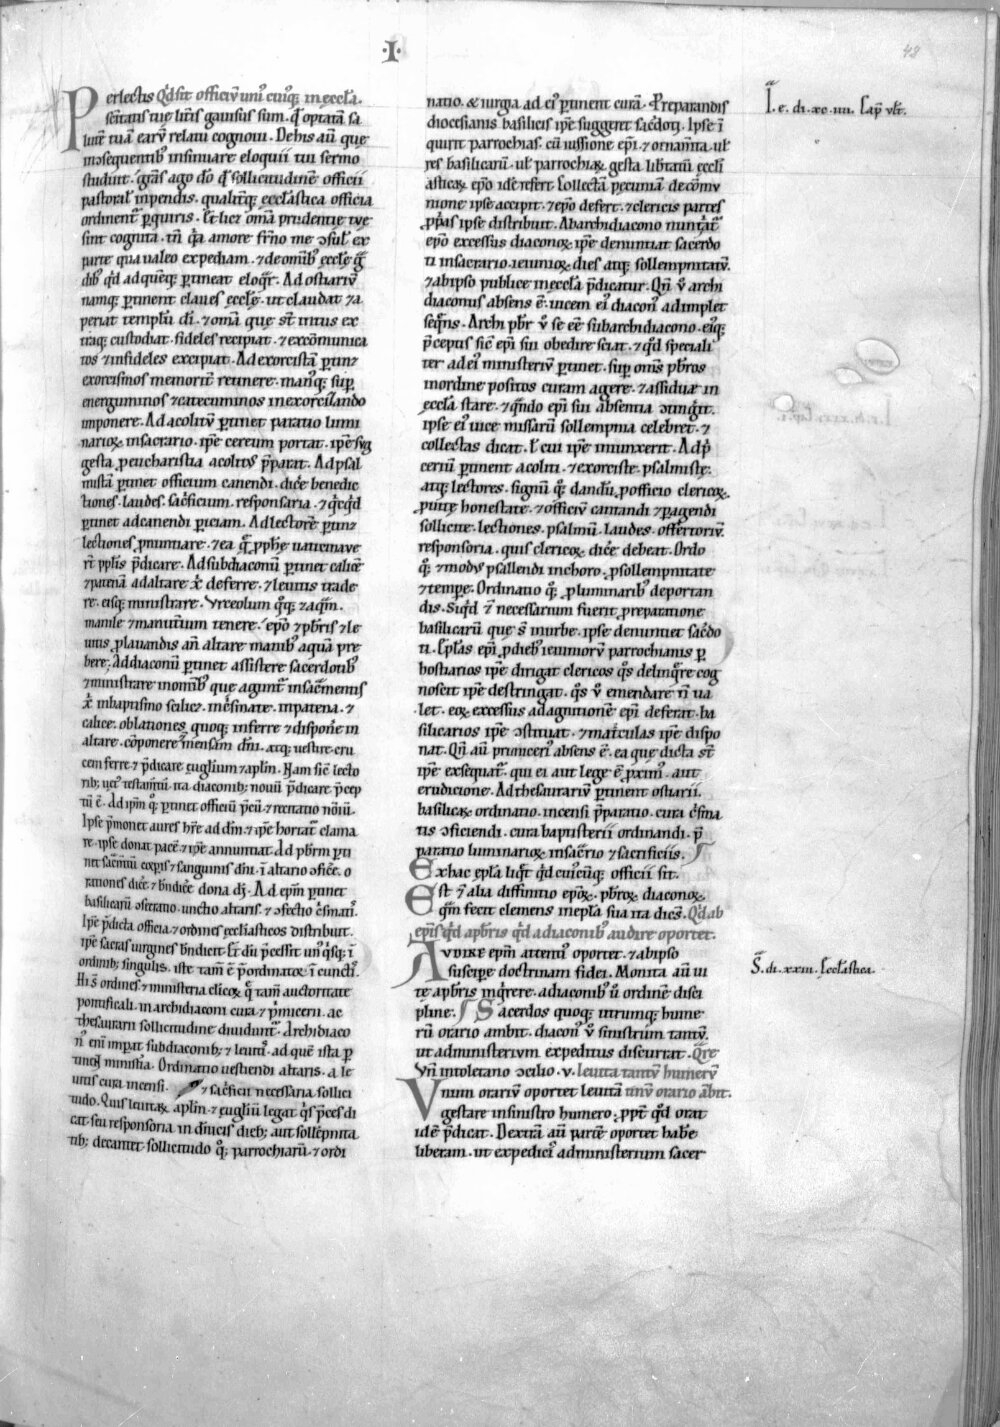 ·I·
48
Perlectis qd sit officiū uni cuiq; in eccła.
sctitatis tue litis gauisus sum. qd optatā sa
lutē tuā earū relatu cognoui. De his aū que
in ɔsequentib; insinuare eloquii tui sermo
studuit. gras ago dō qd sollicitudinē officii
pastoral inpendis. qualitq; eccłastica officia
ordinent pquiris. Et licz oma prudentie tue
sint cognita. tn qa amore frno me ɔsul ex
parte qua ualeo expediam. ⁊ de omib; eccłę g
dib; qd ad quēq; ptineat eloqr. Ad ostiariū
namq; ptinent claues eccłę. ut claudat ⁊ a
periat templū di. ⁊ oma que st intus ex
traq; custodiat. fideles recipiat. ⁊ excōmunica
tos ⁊ infideles excipiat. Ad exorcistā ptinz
exorcismos memoriter retinere. manq; sup
energuminos ⁊ catecuminos in exorcizando
imponere. Ad acolitū ptinet paratio lumi
narioꝝ in sacrario. ipe cereum portat. ipe sug
gesta p eucharistia acolitus pparat. Ad psal
mistā ptinet officium canendi. dicē benedic
tiones. laudes. sacficium. responsoria. ⁊ qcqd
ptinet ad canendi piciam. Ad lectorē ptinz
lectiones pnuntiare. ⁊ ea q pphe uaticinaue
rt pplis pdicare. Ad subdiaconū ptinet calicē
⁊ patenā ad altare xi deferre. ⁊ leuitis trade
re. eisq; ministrare. Vrceolum qq; ⁊ aqm.
manile ⁊ manutium tenere. epo ⁊ pbris ⁊ le
uitis p lauandis an altare manib; aquā pre
bere. Ad diaconū ptinet assistere sacerdotib;
⁊ ministrare in omib; que agunt in sacmentis
xi in baptismo scilicz. in csmate. in patena. ⁊
calice. oblationes quoq; inferre ⁊ disponē in
altare. cōponere mensam dni. atq; uestire. cru
cem ferre. ⁊ pdicare eugłium ⁊ apłm. Nam sic lecto
rib; uet testamtū. ita diaconib; nouū pdicare pcep
tū ē. Ad ipm q; ptinet officiū pcū. ⁊ recitatio noiū.
Ipse pmonet aures hre ad dm. ⁊ ipe hortat clama
re. ipse donat pacē ⁊ ipe annuntiat. Ad pbrm pti
net sacmtū corpis ⁊ sanguinis dni. i altario ɔficē. o
rationes dicē ⁊ bndicē dona di. Ad epm ptinet
basilicarū ɔsecratio. unctio altaris. ⁊ ɔfectio csmatis.
Ipe pdicta officia. ⁊ ordines eccłasticos distribuit.
ipe sacras uirgines bndicit. Et dū pcessit uni qsq; i
ordinib; singulis. iste tam ē pordinator i cunctis.
Hi s ordines ⁊ ministeria clicoꝝ q tam auctoritate
pontificali. in archidiaconi cura ⁊ pmicerii. ac
thesaurarii sollicitudine diuidunt. Archidiaco
n eni impat subdiaconib; ⁊ leuitis. ad quē ista p
tinēt ministia. Ordinatio uestiendi altaris. a le
uitis cura incensi. ⁊ sacficii necessaria sollici
tudo. Quis leuitaꝝ apłm ⁊ eugłiū legat qs pces di
cat. seu responsoria in dnicis dieb; aut sollēpnita
tib; decantet. sollicitudo q; parrochiarū. ⁊ ordi
natio. & iurgia ad ei ptinent curā. Preparandis
diocesianis basilicis ipe suggerit sacdoti. Ipse i
quirit parrochias. cū iussione epi. ⁊ ornamta. ul
res basilicarū. ul parrochiaꝝ. gesta libtatū eccli
asticaꝝ epo idē refert. Collectā pecuniā de cōmu
nione ipse accipit. ⁊ epo defert. ⁊ clericis partes
ppas ipse distribuit. Ab archidiacono nuntiat
epo excessus diaconoꝝ. ipe denuntiat sacerdo
ti in sacrario. ieiunioꝝ dies atq; sollempnitatū.
⁊ ab ipso publice in eccła pdicatur. Qn u archi
diaconus absens ē. uicem ei diacon adimplet
seqns. Archi pbr u se eē sub archidiacono. eiq;
pceptis sic epi sui obedire sciat. ⁊ qd speciali
ter ad ei ministeriū ptinet. sup omis pbros
in ordine positos curam agere. ⁊ assidue in
eccła stare. ⁊ qndo epi sui absentia ɔtingit.
ipse ei uice missarū sollempnia celebret. ⁊
collectas dicat. l cui ipe iniunxerit. Ad pi
ceriū ptinent acoliti. ⁊ exorciste. psalmistę.
atq; lectores. signū q; dandū p officio clericoꝝ.
p uite honestate. ⁊ officiū cantandi ⁊ pagendi
sollicite. lectiones. psalmū. laudes. offertoriū.
responsoria. quis clericoꝝ dicē debeat. Ordo
q; ⁊ modus psallendi in choro. p sollempnitate
⁊ tempe. Ordinatio q; p luminarib; deportan
dis. Siqd ē necessarium fuerit p reparatione
basilicarū que st in urbe. ipse denuntiet sacdo
ti. Epłas epi p dieb; ieiuniorū parrochianis p
hostiarios ipe dirigat. clericos qs delinqre cog
noscit ipe destringat. qs u emendare n ua
let. eoꝝ excessus ad agnitionē epi deferat. ba
silicarios ipe ɔstituat. ⁊ matculas ipe dispo
nat. Qn aū primiceri absens ē. ea que dicta st
ipe exsequat. qui ei aut lege ē proxim. aut
eruditione. Ad thesaurariū ptinent ostiarii.
basilicaꝝ ordinatio. incensi pparatio. cura csma
tis ɔficiendi. cura baptisterii ordinandi. p
paratio luminarioꝝ in sacrio ⁊ sacrificiis.
Ex hac epła liqt qd cuicūq; officii sit.
Est ⁊ alia diffinitio epoꝝ. pbroꝝ. diaconoꝝ.
qm fecit clemens in epła sua ita dicēs. Qd ab
epis qd a pbris qd a diaconib; audire oportet.
AVDIRE epm attentius oportet. ⁊ ab ipso
suscipe doctrinam fidei. Monita aū ui
te a pbris inqrere. a diaconib; u ordinē disci
pline. Sacerdos quoq; utrumq; hume
rū orario ambit. diacon u sinistrum tantū.
ut ad ministerium expeditus discurrat. Qre
Vn in toletano ɔcilio .v. leuita tantū humerū
Vnum orariū oportet leuitā unū orario abit.
gestare in sinistro humero. ppt qd orat
idē pdicat. Dextrā aū partē oportet habe
liberam. ut expedici administerium sacer
I. e. di. xc. iiii. Cap ult.
S. di. xxiii. Ecclastica.